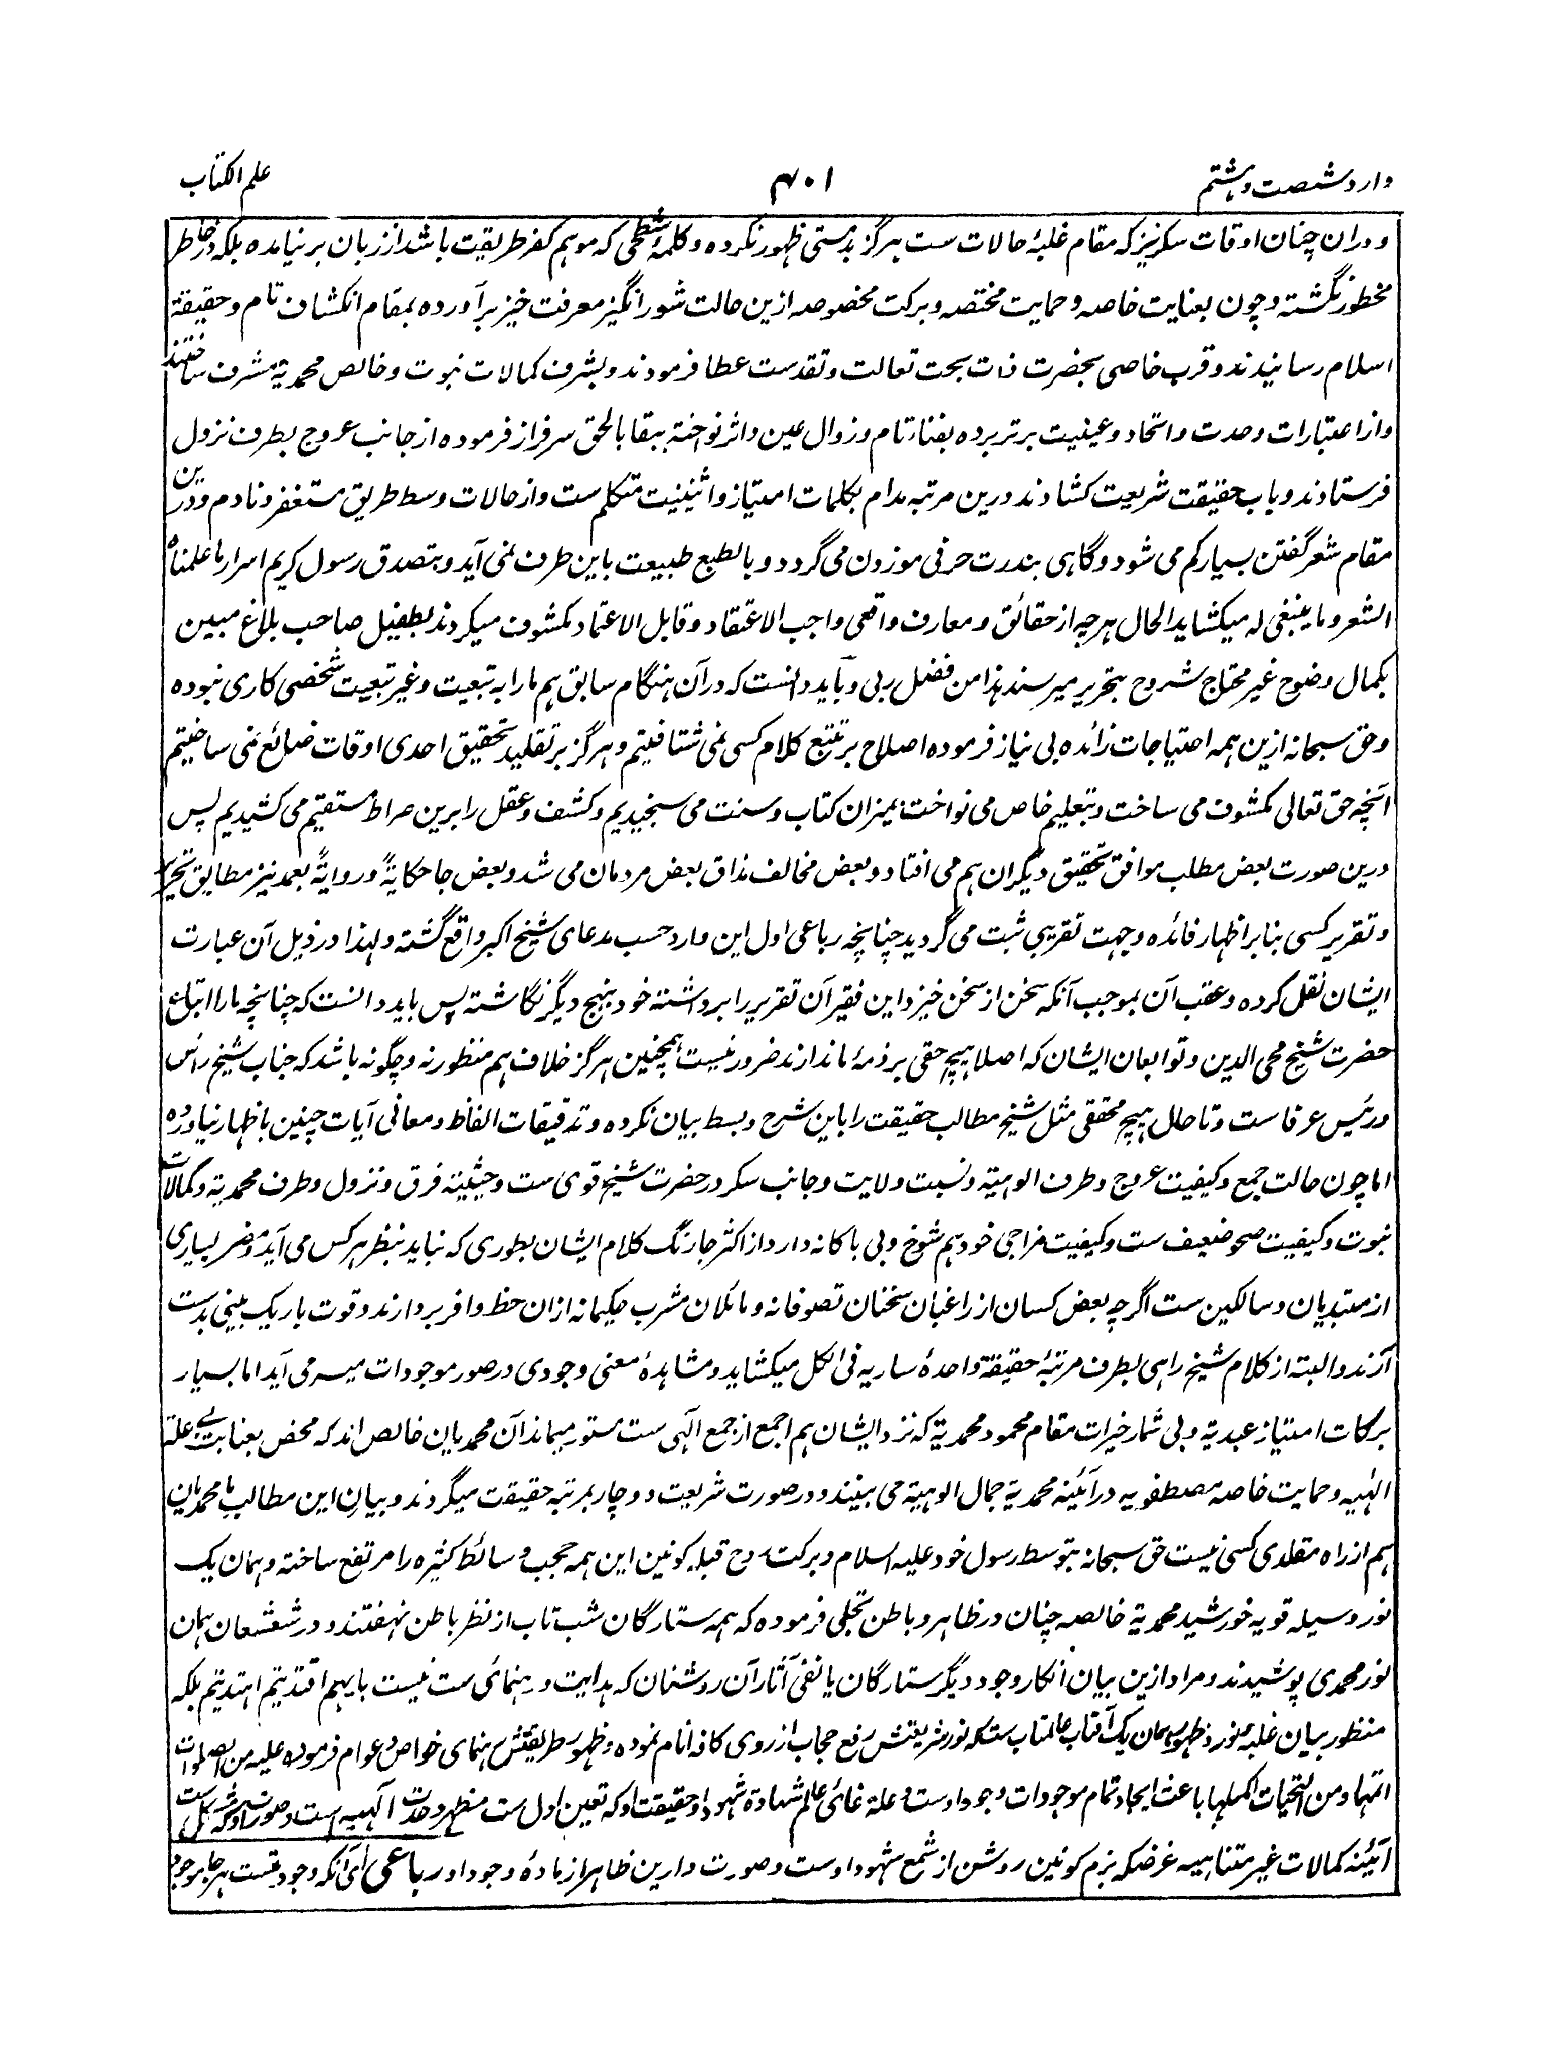 وارد شصت و هشتم
۴۰۱
علم الکتاب
و دران چنان اوقات سکر نیز که مقام غلبۂ حالات ست هرگز بدمستی ظهور نکرده و کلمۂ شطحی که موهم کفر طریقت باشد از زبان بر نیامده بلکه در خاطر
مخطور نگشته و چون بعنایت خاصه و حمایت مختصه و برکت مخصوصه ازین حالت شور انگیز معرفت خیز برآورده بمقام انکشاف تام و حقیقة
اسلام رسانیدند و قرب خاصی بحضرت ذات بحت تعالت و تقدست عطا فرمودند و بشرف کمالات نبوت و خالص محمدیة مشرف ساختند
و از اعتبارات وحدت و اتحاد و عینیت برتر برده بفناء تام و زوال عین و اثر نواخته ببقا بالحق سرفراز فرموده از جانب عروج بطرف نزول
فرستادند و باب حقیقت شریعت کشادند و درین مرتبه مدام بکلمات امتیاز و اثنینیت متکلم ست و از حالات وسط طریق مستغفر و نادم و درین
مقام شعر گفتن بسیار کم می شود و گاهی بندرت حرفی موزون می گردد و بالطبع طبیعت باین طرف نمی آید و بتصدق رسول کریم اسرار ما علمناه
الشعر و ما ینبغی له میکشاید الحال هر چه از حقائق و معارف واقعی واجب الاعتقاد و قابل الاعتماد مکشوف میکردند بطفیل صاحب بلاغ مبین
بکمال وضوح غیر محتاج شروح بتحریر میرسند هذا من فضل ربی و باید دانست که در آن هنگام سابق هم ما را به تبعیت و غیر تبعیت شخصی کاری نبوده
و حق سبحانه ازین همه احتیاجات زائده بی نیاز فرموده اصلاح بر تتبع کلام کسی نمی شتافتیم و هرگز بر تقلید تحقیق احدی اوقات ضائع نمی ساختیم
آنچه حق تعالی مکشوف می ساخت و بتعلیم خاص می نواخت بمیزان کتاب و سنت می سنجیدیم و کشف و عقل را برین صراط مستقیم می کشیدیم پس
درین صورت بعض مطلب موافق تحقیق دیگران هم می افتاد و بعض مخالف مذاق بعض مردمان می شد و بعض جا حکایةً و روایةً بعمد نیز مطابق تحریر
و تقریر کسی بنابر اظهار فائده و جهت تقریبی ثبت می گردید چنانچه رباعی اول این وارد حسب مدعای شیخ اکبر واقع گشته و لهذا در ذیل آن عبارت
ایشان نقل کرده و عقب آن بموجب آنکه سخن از سخن خیزد این فقیر آن تقریر را برداشته خود بنهج دیگر نگاشته پس باید دانست که چنانچه ما را اتباع
حضرت شیخ محی الدین و توابعان ایشان که اصلا هیچ حقی بر ذمۂ ما ندارند ضرور نیست همچنین هرگز خلاف هم منظور نه و چگونه باشد که جناب شیخ راس
و رئیس عرفا ست و تا حال هیچ محققی مثل شیخ مطالب حقیقت را باین شرح و بسط بیان نکرده و تدقیقات الفاظ و معانی آیات چنین باظهار نیاورده
اما چون حالت جمع و کیفیت عروج و طرف الوهیة و نسبت ولایت و جانب سکر در حضرت شیخ قوی ست و حیثیة فرق و نزول و طرف محمدیة و کمالات
نبوت و کیفیت صحو ضعیف ست و کیفیت مزاجی خود هم شوخ و بی باکانه دارد از اکثر جا رنگ کلام ایشان بطوری که نباید بنظر هر کس می آید و مضر بسیاری
از مبتدیان و سالکین ست اگر چه بعض کسان از راغبان سخنان تصوفانه و مائلان مشرب حکیمانه ازان حظ وافر بردارند و قوت باریک بینی بدست
آرند و البته از کلام شیخ راهی بطرف مرتبۂ حقیقة واحدۂ ساریه فی الکل میکشاید و مشاهدۂ معنی وجودی در صور موجودات میسر می آید اما بسیار
برکات امتیاز عبدیة و بی شمار خیرات مقام محمود محمدیة که نزد ایشان هم اجمع از جمع الٰهی ست مستور میماند آن محمدیان خالص اند که محض بعنایت بے علة
الٰهیه و حمایت خاصه مصطفویه در آئینه محمدیة جمال الوهیة می بینند و در صورت شریعت دو چار بمرتبه حقیقت میگردند و بیان این مطالب با محمدیان
هم از راه مقلدی کسی نیست حق سبحانه بتوسط رسول خود علیه السلام و برکت روح قبله کونین این همه حجب و سائط کثیره را مرتفع ساخته و همان یک
نور وسیله قویه خورشید محمدیة خالصه چنان در ظاهر و باطن تجلی فرموده که همه ستارگان شب تاب از نظر باطن نهفتند و در شعشعان همان
نور محمدی پوشیدند و مراد ازین بیان انکار وجود دیگر ستارگان یا نفی آثار آن روشنان که هدایت و رهنمائی ست نیست بایهم اقتدیتم اهتدیتم بلکه
منظور بیان غلبه نور و ظهور همان یک آفتاب عالمتاب ست که نور شریعتش رفع حجاب از روی کافه انام نموده و ظهور طریقتش رهنمای خواص و عوام فرموده علیه من الصلوات
اتمها و من التحیات اکملها باعث ایجاد تمام موجودات وجود اوست و علة غائی عالم شهادة شهود او حقیقت او که تعین اول ست مظهر وحدت الٰهیه ست و صورت او که
آئینه کمالات غیر متناهیه غرضکه بزم کونین روشن از شمع شهود اوست و صورت دارین ظاهر از مادۂ وجود او رباعی ای آنکه وجود تست هر جا موجود